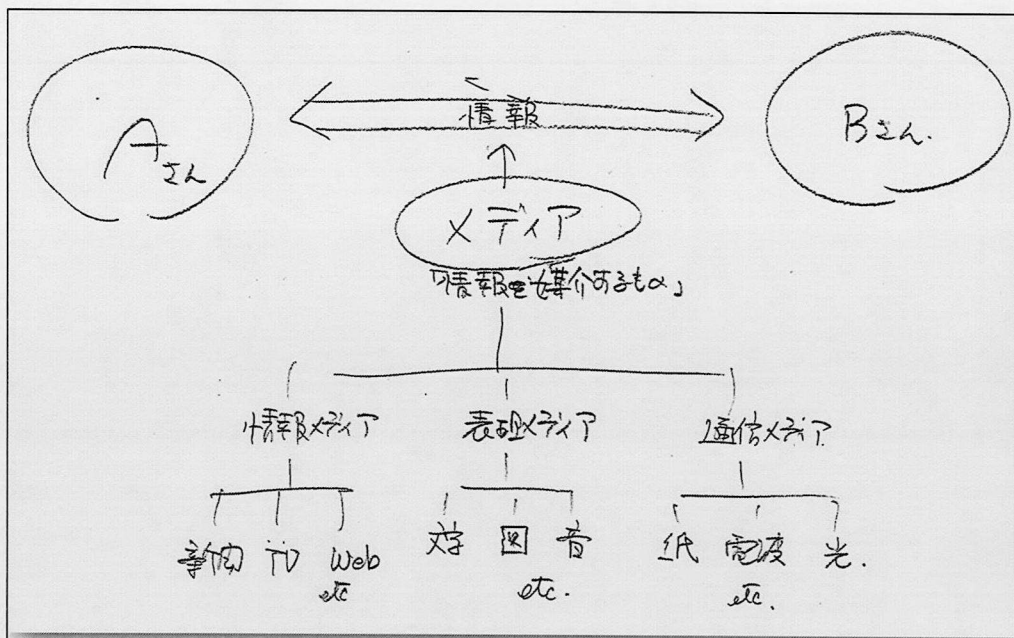 Aさん
情報
Bさん.
メディア
「情報を媒介するもの」
情報メディア 表現メディア 通信メディア
新聞 TV Web etc
文字 図 音 etc.
紙 電波 光. etc.